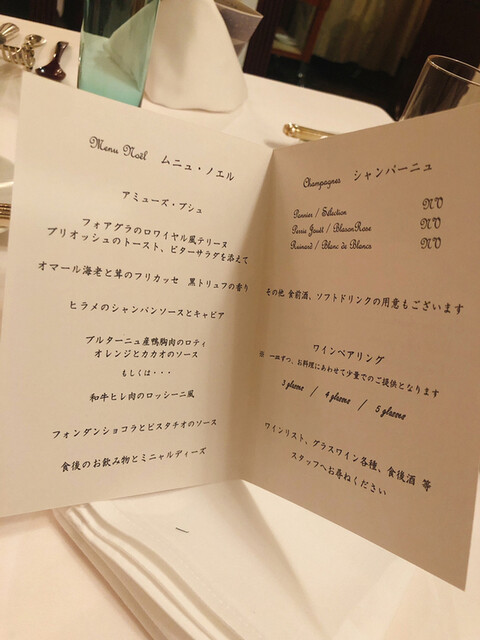 Menu Noël ムニュ・ノエル
アミューズ・ブシュ
フォアグラのロワイヤル風テリーヌ
ブリオッシュのトースト、ビターサラダを添えて
オマール海老と茸のフリカッセ 黒トリュフの香り
ヒラメのシャンパンソースとキャビア
ブルターニュ産鴨胸肉のロティ
オレンジとカカオのソース
もしくは・・・
和牛ヒレ肉のロッシーニ風
フォンダンショコラとピスタチオのソース
食後のお飲み物とミニャルディーズ
Champagnes シャンパーニュ
Pannier / Sélection NV
Perrie Jouët / Blason Rose NV
Ruinard / Blanc de Blancs NV
その他 食前酒、ソフトドリンクの用意もございます
ワインペアリング
※ 一皿ずつ、お料理にあわせて少量でのご提供となります
3 glasses / 4 glasses / 5 glasses
ワインリスト、グラスワイン各種、食後酒 等
スタッフへお尋ねください